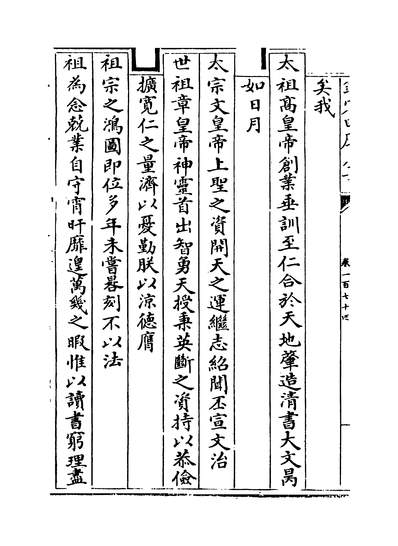 矣我
太祖高皇帝創業垂訓至仁合於天地肇造清書大文昺
如日月
太宗文皇帝上聖之資開天之運繼志紹聞丕宣文治
世祖章皇帝神靈首出智勇天授秉英斷之資持以恭儉
擴寛仁之量濟以憂勤朕以涼德膺
祖宗之鴻圖即位多年未嘗晷刻不以法
祖為念兢業自守宵旰靡遑萬幾之暇惟以讀書窮理盡
卷一百七十四